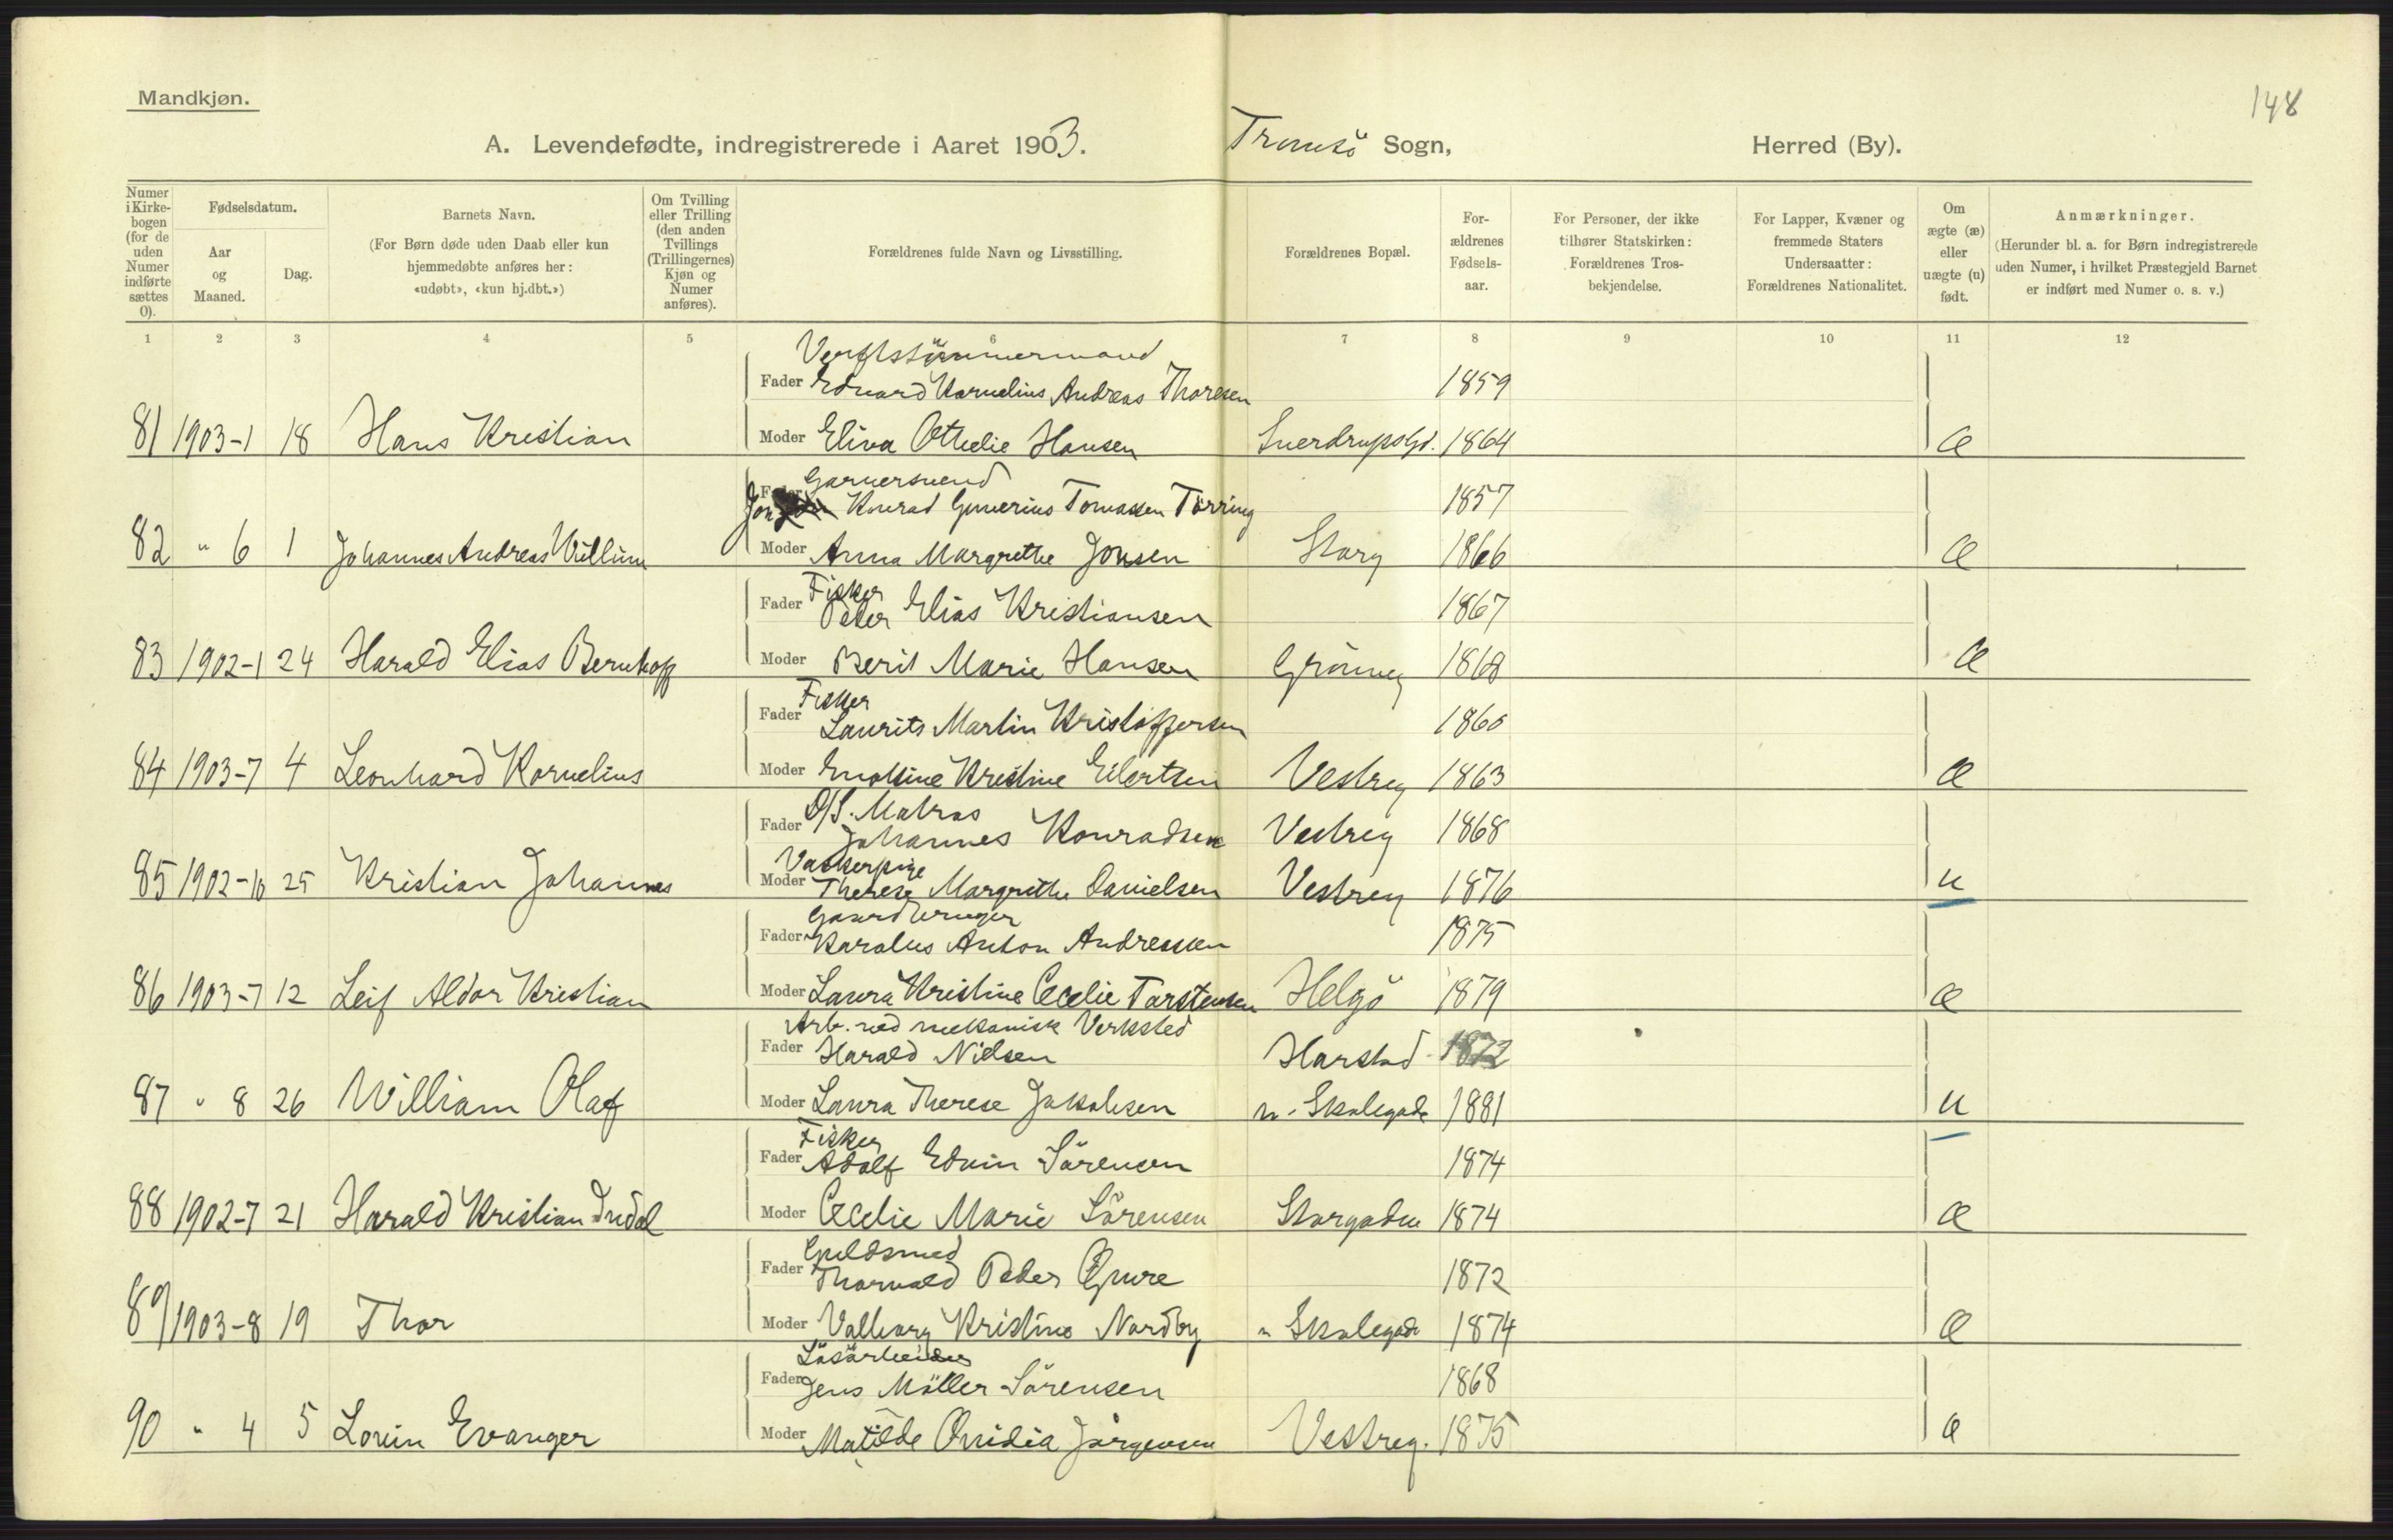 Mandkjøn.
148
A. Levendefødte, indregistrerede i Aaret 1903. Tromsö Sogn, Herred (By).
Numer i Kirkebogen (for de uden Numer indførte sættes 0).
Fødselsdatum.
Aar og Maaned.
Dag.
Barnets Navn.
(For Børn døde uden Daab eller kun hjemmedøbte anføres her: «udøbt», «kun hj.dbt.»)
Om Tvilling eller Trilling (den anden Tvillings (Trillingernes) Kjøn og Numer anføres).
Forældrenes fulde Navn og Livsstilling.
Forældrenes Bopæl.
Forældrenes Fødselsaar.
For Personer, der ikke tilhører Statskirken: Forældrenes Trosbekjendelse.
For Lapper, Kvæner og fremmede Staters Undersaatter: Forældrenes Nationalitet.
Om ægte (æ) eller uægte (u) født.
Anmærkninger.
(Herunder bl. a. for Børn indregistrerede uden Numer, i hvilket Præstegjeld Barnet er indført med Numer o. s. v.)
1 2 3 4 5 6 7 8 9 10 11 12
Verftstömmermand
Fader Edvard Kornelius Andreas Thoresen 1859
81 1903-1 18 Hans Kristian Moder Eliva Othelie Hansen Sverdrupsgd. 1864 æ
Garversvend
Fader Jon Konrad Gunerius Tomassen Törring 1857
82 " 6 1 Johannes Andreas Villum Moder Anna Margrethe Jonsen Storg 1866 æ
Fisker
Fader Peter Elias Kristiansen 1867
83 1902-1 24 Harald Elias Bernhoff Moder Berit Marie Hansen Grönneg 1868 æ
Fisker
Fader Laurits Martin Kristoffersen 1860
84 1903-7 4 Leonhard Kornelius Moder Kristine Eilertsen Vestreg 1863 æ
D/S. Matros
Fader Johannes Konradsen Vestreg 1868
Vaskerpige
85 1902-10 25 Kristian Johannes Moder Therese Margrethe Danielsen Vestreg 1876 u
Gaardbruger
Fader Karolus Anton Andreassen 1875
86 1903-7 12 Leif Aldor Kristian Moder Laura Kristine Cecelie Torstensen Helgö 1879 æ
Arb. ved mekanisk Verksted
Fader Harald Nilsen Harstad 1872
87 " 8 26 William Olaf Moder Laura Therese Jakobsen n. Skolegade 1881 u
Fisker
Fader Adolf Edvin Sörensen 1874
88 1902-7 21 Harald Kristian Indal Moder Cecelie Marie Sörensen Storgaden 1874 æ
Guldsmed
Fader Thorvald Peder Gjure 1872
89 1903-8 19 Thor Moder Valborg Kristine Nordby n Skolegade 1874 æ
Lösarbeider
Fader Jens Möller Sörensen 1868
90 " 4 5 Lorin Evanger Moder Matilde Ovidia Jörgensen Vestreg. 1875 æ